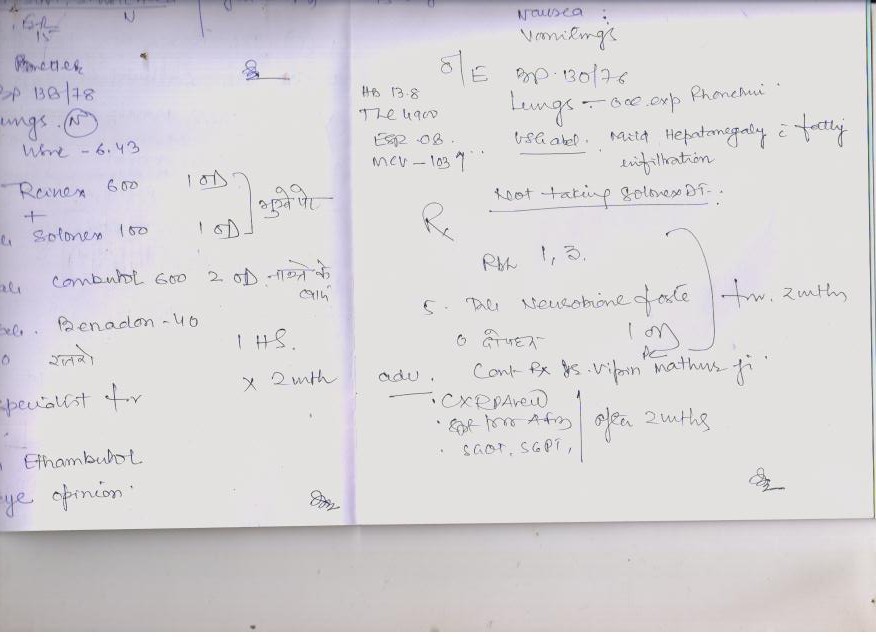 N
Better
BP 138/78
ungs. N
Urine - 6.43
Rcinex 600 1 OD
+
Solonex 100 1 OD
भूखे पेट
Combutol 600 2 OD नाश्ते के बाद
Benadon-40
1 HS.
रात को
x 2mth
specialist for
Ethambutol
ye opinion.
Nausea :
Vomitings
O/E BP. 130/76
HB 13.8
Lungs - occ. exp Rhonchi.
Tlc 4900
ESR - 08.
MCV - 103
USG abd. Mild Hepatomegaly c fatty
infiltration
Not taking Solonex DT.
Rx
1, 3.
5. Neurobione forte
1 OD
दोपहर
for. 2mths
adv. Cont Rx Vipin Mathur ji.
. CXR PA view
. for AFB
. SGOT, SGPT,
after 2mths